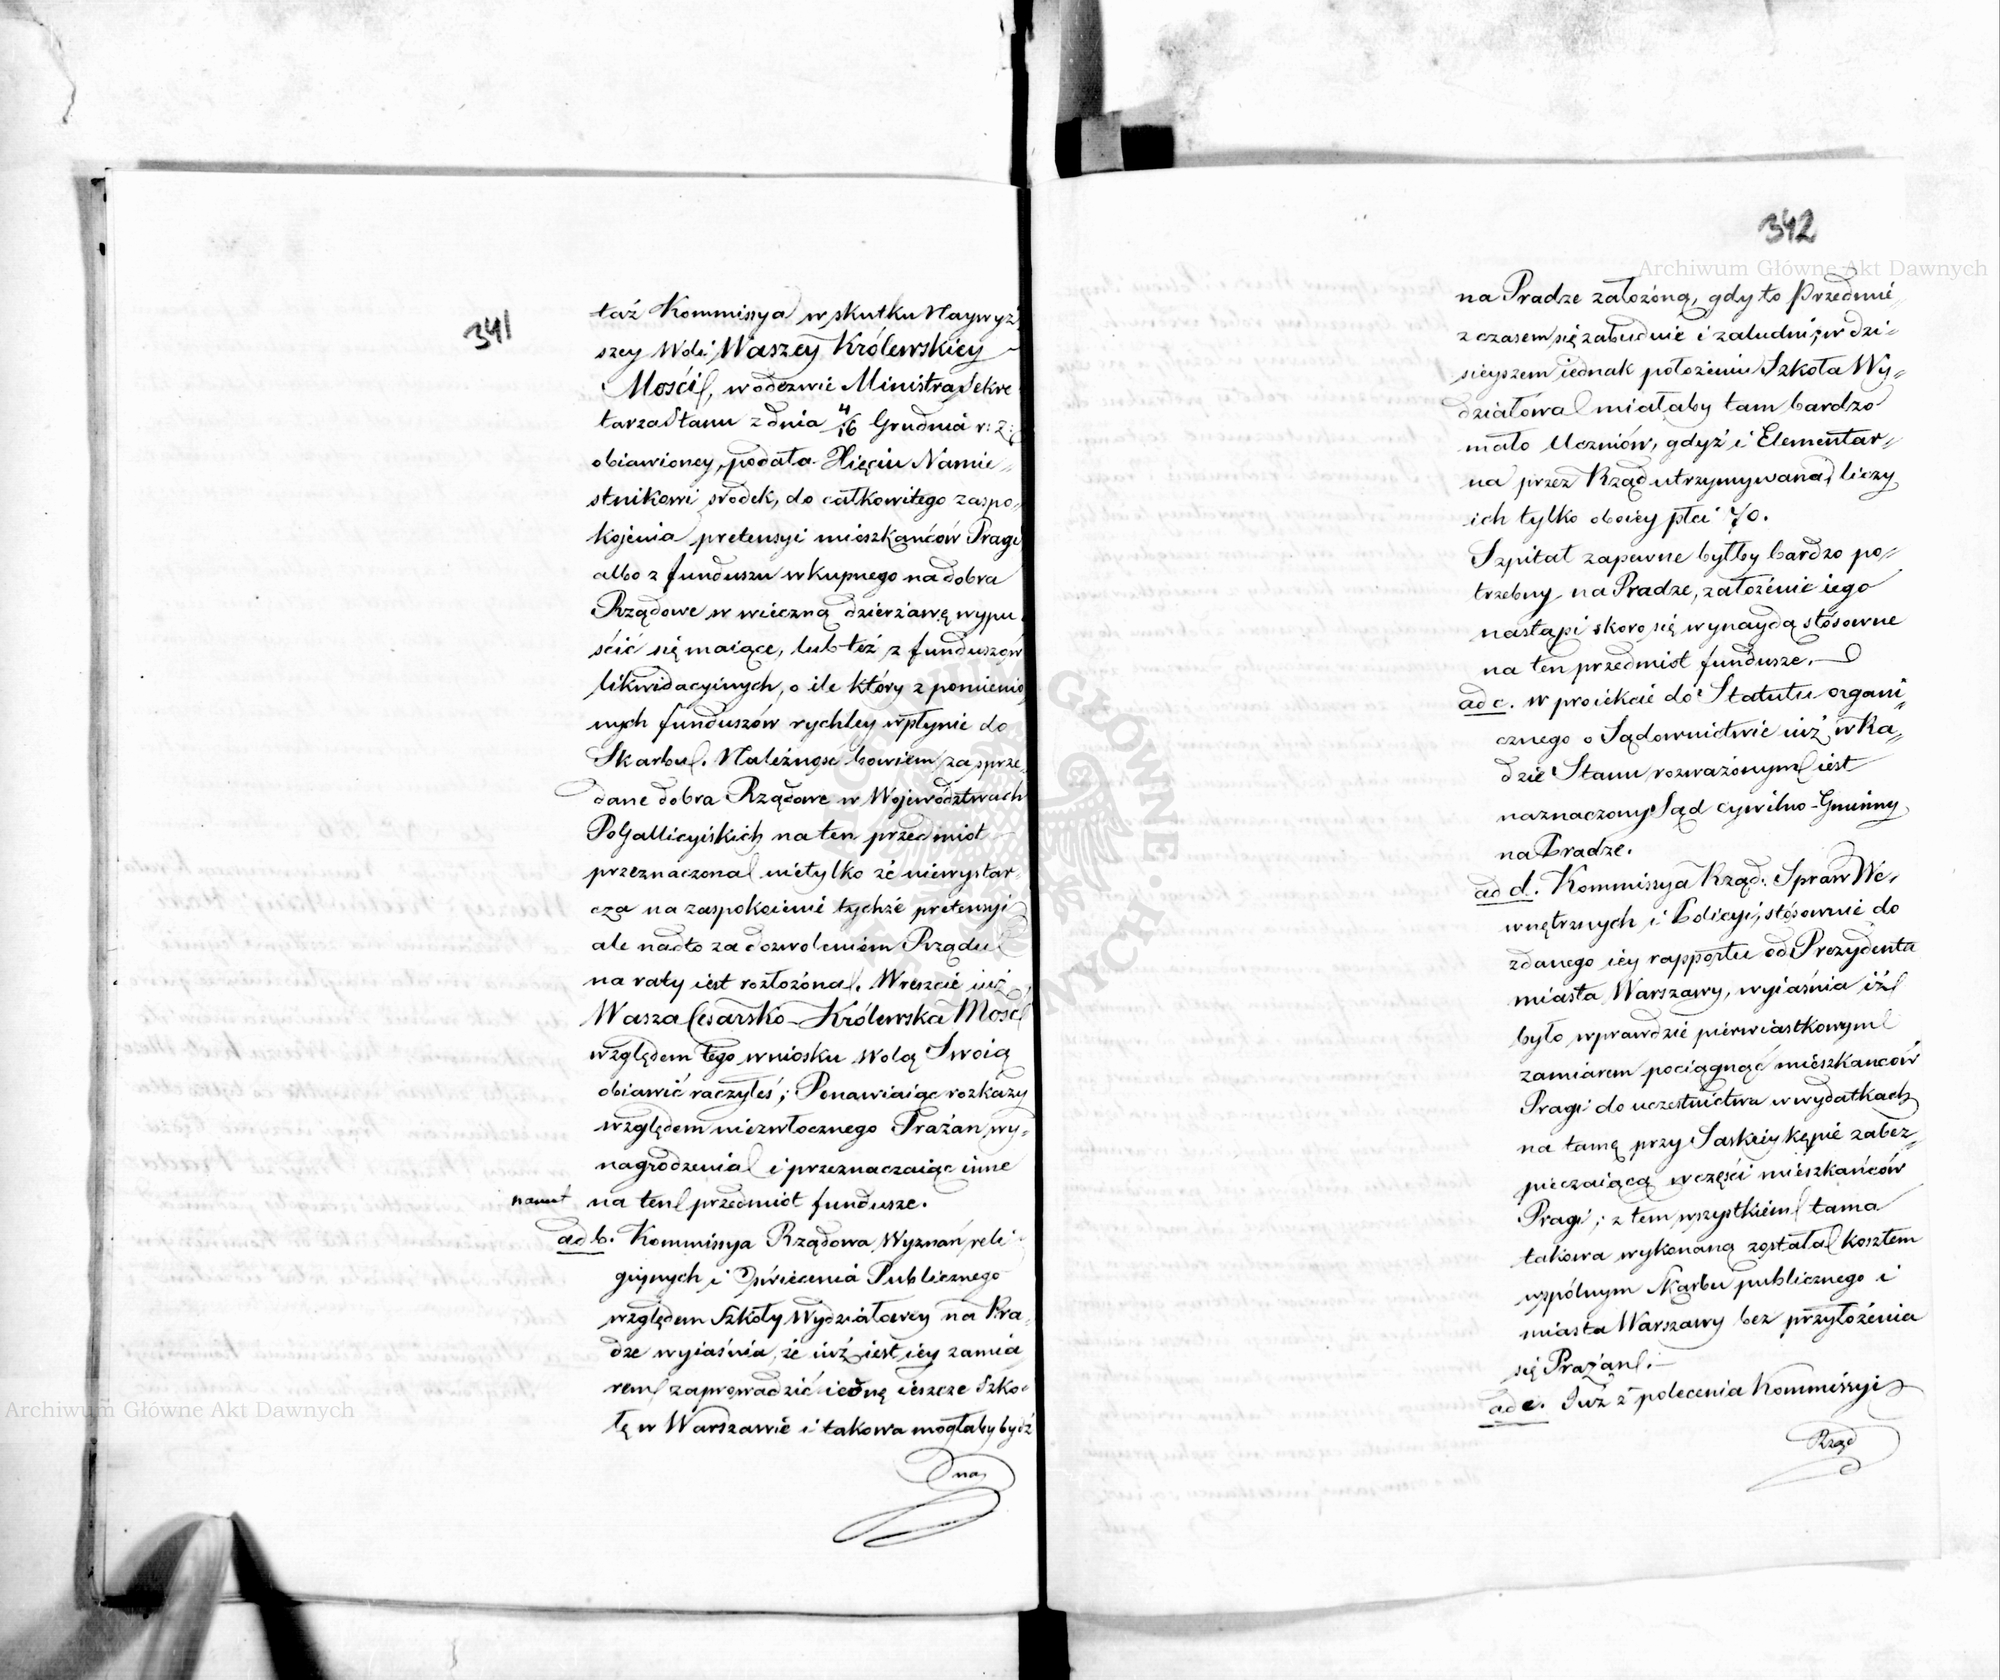 341
taż Kommissya w skutku Naywyż
szey Woli Waszey Królewskiey
Mości, w odezwie Ministra Sekre
tarza Stanu z dnia 4/16 Grudnia r: z:
obiawioney, podała Xięciu Namie„
stnikowi srodek, do całkowitego zaspo„
kojenia pretensyi mieszkańców Pragi
albo z funduszu wkupnego na dobra
Rządowe w wieczną dzierżawę wypu
ścić się maiące, lub też z funduszów
likwidacyinych, o ile który z pomienio
nych funduszów rychley wpłynie do
Skarbu. Należność bowiem za sprze„
dane dobra Rządowe w Województwach
PoGallicyiskich na ten przedmiot
przeznaczona nietylko że niewystar
cza na zaspokoienie tychże pretensyi
ale nadto za dozwoleniem Rządu
na raty iest rozłożona. Wreszcie iuż
Wasza Cesarsko-Królewska Mość
względem tego wniosku Wolą Swoią
obiawić raczyłeś; Ponawiaiąc rozkazy
względem niezwłocznego Prażan wy„
nagrodzenia i przeznaczaiąc inne
nawet na ten przedmiot fundusze.
ad b. Kommissya Rządowa Wyznań reli
giynych i Oświecenia Publicznego
względem Szkoły Wydziałowey na Pra„
dze wyiaśnia, że iuż iest iey zamia
rem zaprowadzić iednę ieszcze Szko„
łę w Warszawie i takowa mogłaby bydź
na
342
Archiwum Główne Akt Dawnych
na Pradze założoną, gdy to Przedmie„
z czasem się zabuduie i zaludni; w dzi„
sieyszem iednak położeniu Szkoła Wy„
działowa miałaby tam bardzo
mało Uczniów, gdyż i Elementar„
na przez Rząd utrzymywana, liczy
ich tylko oboiey płci 70.
Szpital zapewne byłby bardzo po„
trzebny na Pradze, założenie iego
nastąpi skoro się wynaydą stósowne
na ten przedmiot fundusze.
ad c. w proiekcie do Statutu organi„
cznego o Sądownictwie iuż w Ra„
dzie Stanu rozważonym iest
naznaczony Sąd Cywilno-Gminny
na Pradze.
ad d. Kommissya Rząd. Spraw We„
wnętrznych i Policyi, stósownie do
zdanego iey rapportu od Prezydenta
miasta Warszawy, wyiaśnia iż
było wprawdzie pierwiastkowym
zamiarem pociągnąć mieszkanców
Pragi do uczestnictwa w wydatkach
na tamę przy Saskiey kępie zabez„
pieczaiącą w części mieszkańców
Pragi; z tem wszystkiem tama
takowa wykonaną została kosztem
wspólnym Skarbu publicznego i
miasta Warszawy bez przyłożenia
się Prażan.
ad e. Już z polecenia Kommissyi
Rząd
Archiwum Główne Akt Dawnych